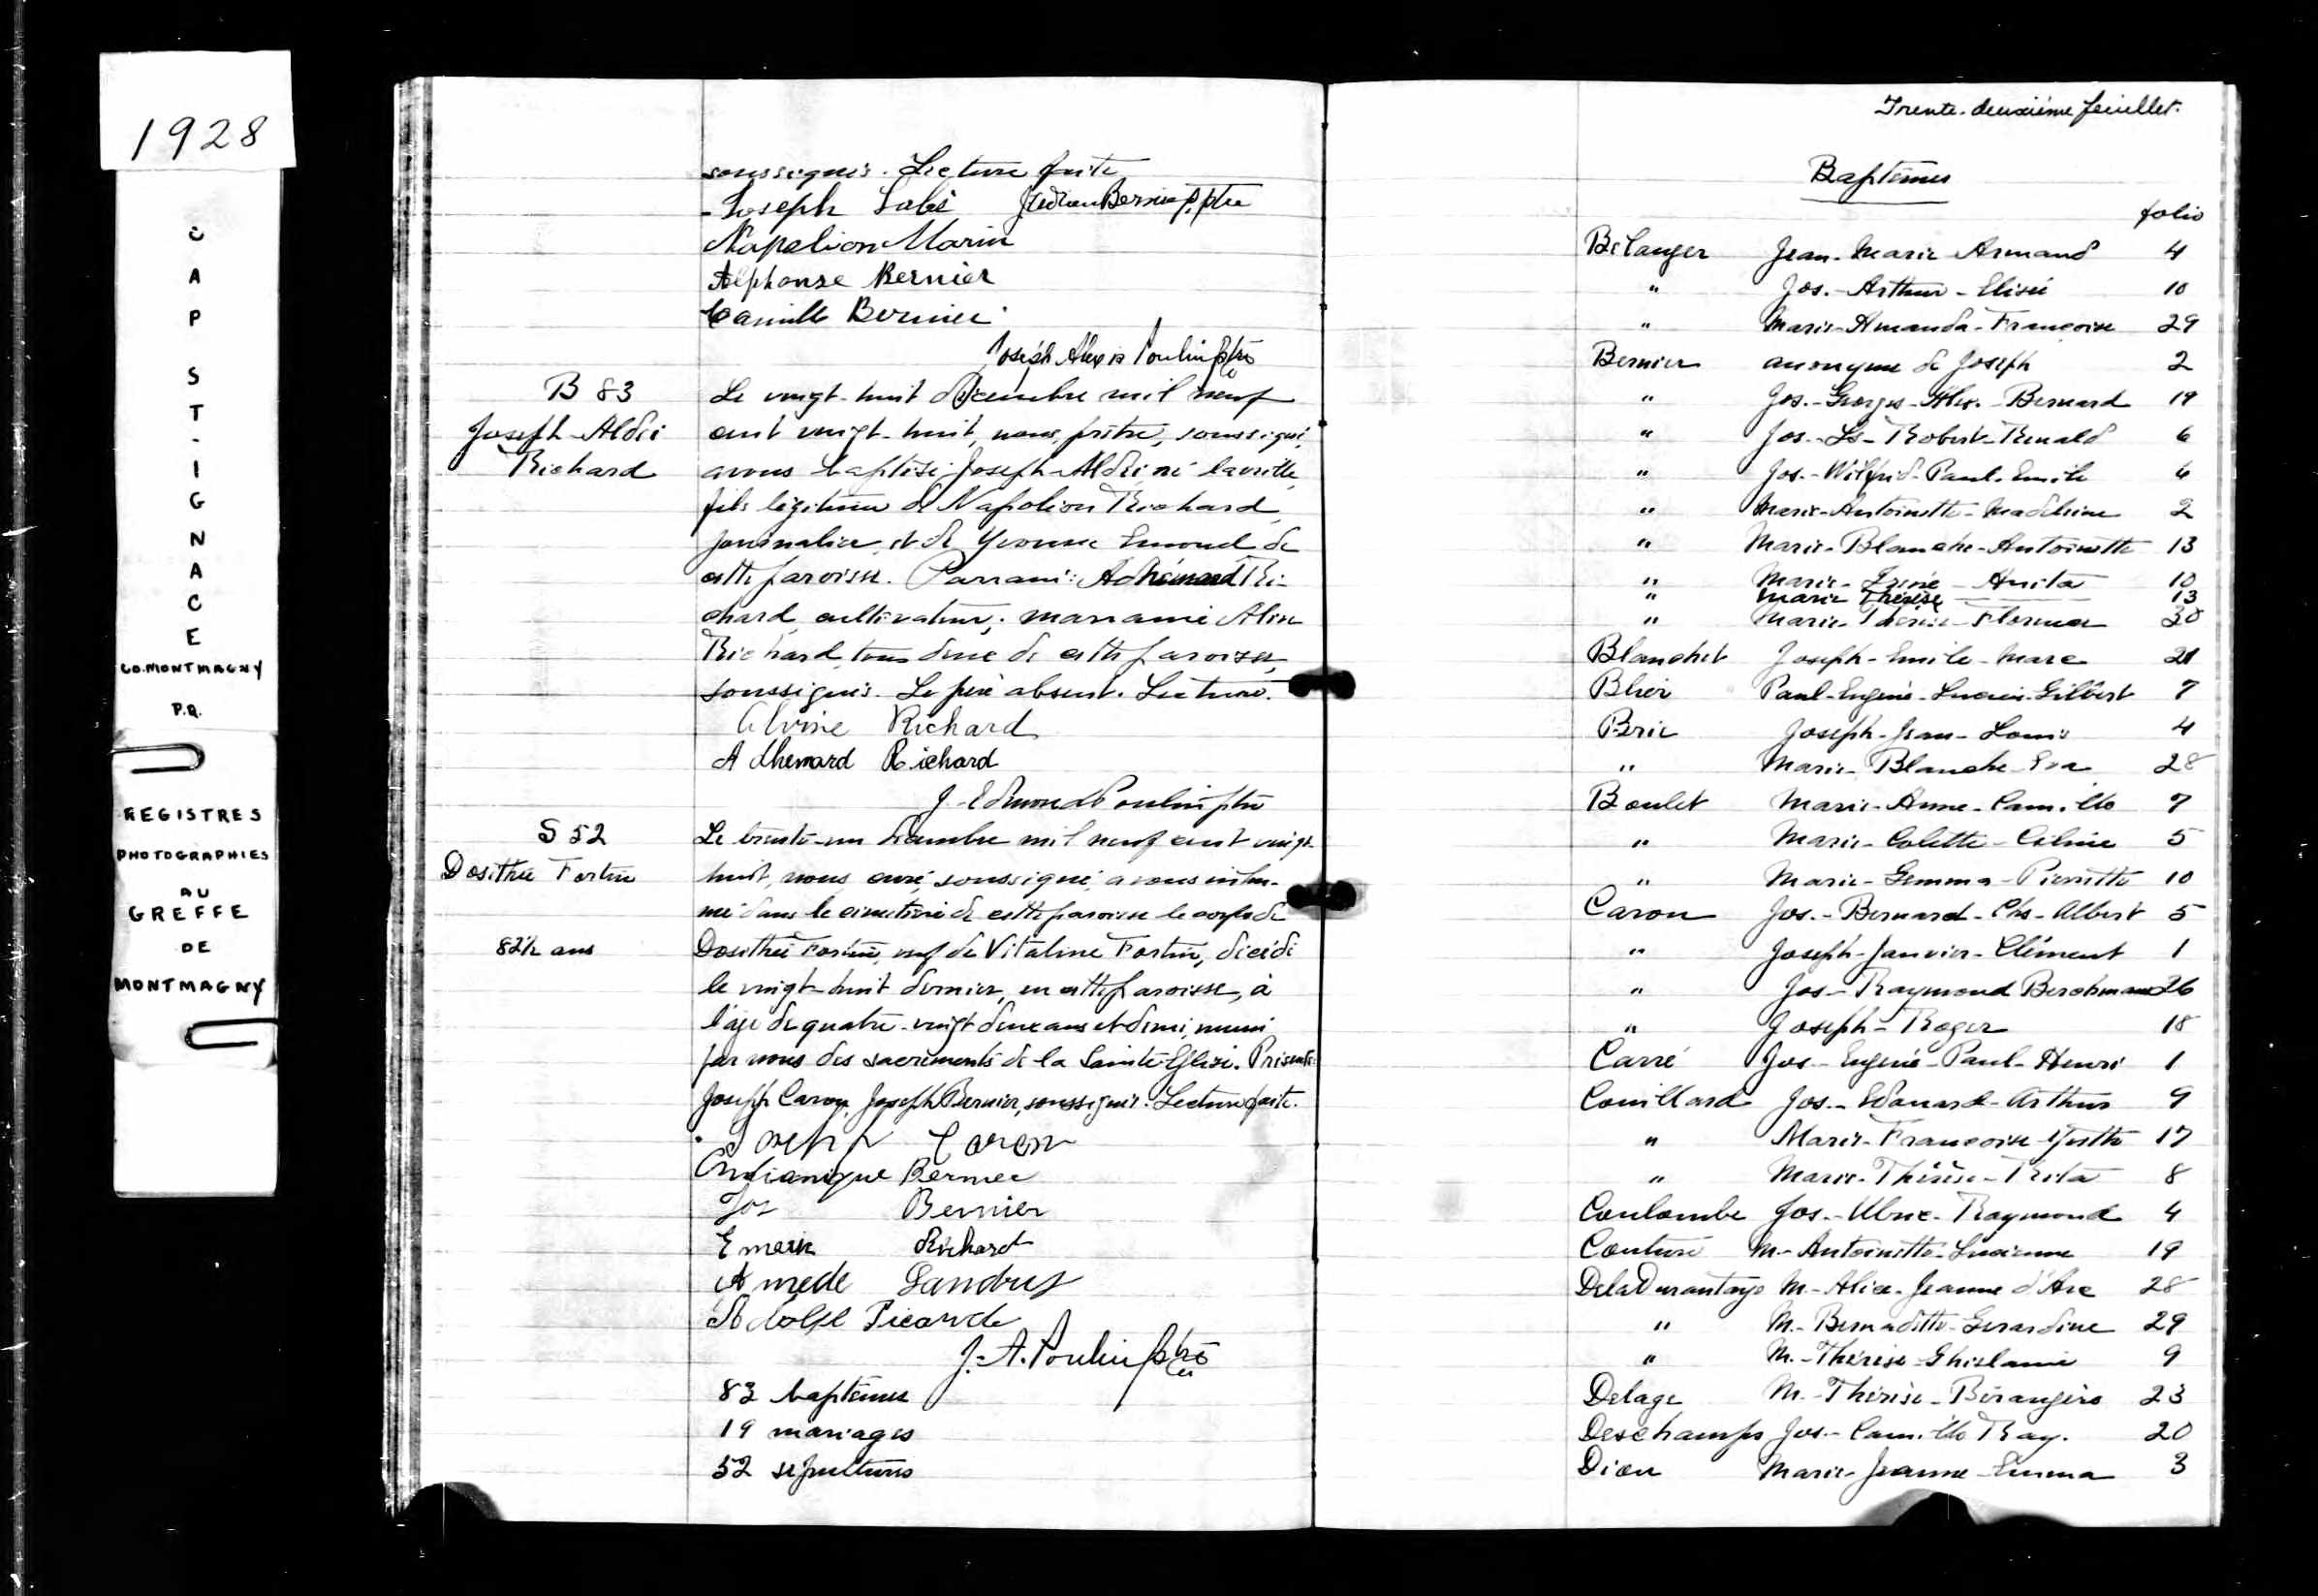 1928
CAP ST-IGNACE
CO. MONTMAGNY
P.Q.
REGISTRES
PHOTOGRAPHIES
AU
GREFFE
DE
MONTMAGNY
soussignés. Lecture faite
Joseph Labé Bernier, ptre
Napoléon Marin
Alphonse Bernier
Camille Bernier
Joseph Alexis Poulin ptre
B 83
Joseph-Aldéi
Richard
Le vingt-huit décembre mil neuf
cent vingt-huit, nous, prêtre, soussigné,
avons baptisé Joseph-Aldéi né la veille,
fils légitime de Napoléon Richard,
journalier, et de Yvonne Emond de
cette paroisse. Parrain: Adhémard Ri-
chard, cultivateur; marraine Aline
Richard, tous deux de cette paroisse,
soussignés. Le père absent. Lecture.
Alvine Richard
Adhemard Richard
J. Edmond Poulin ptre
S 52
Dosithée Fortin
82½ ans
Le trente-un décembre mil neuf cent vingt-
huit, nous, curé, soussigné, avons inhu-
mé dans le cimetière de cette paroisse le corps de
Dosithée Fortin, veuf de Vitaline Fortin, décédé
le vingt-huit dernier, en cette paroisse, à
l'âge de quatre-vingt deux ans et demi, muni
par nous des sacrements de la Sainte Eglise. Présents:
Joseph Caron, Joseph Bernier, soussignés. Lecture faite.
Joseph Caron
Bernier
Jos Bernier
Emeric Richard
Amede Landry
Adolph Picard
J.-A. Poulin ptre
83 baptêmes
19 mariages
52 sépultures
Trente-deuxième feuillet.
Baptêmes
folio
Bélanger Jean-Marie-Armand 4
" Jos.-Arthur-Elisée 10
" Marie-Amanda-Françoise 29
Bernier anonyme de Joseph 2
" Jos.-Georges-Alex.-Bernard 19
" Jos.-Ls-Robert-Renald 6
" Jos.-Wilfrid-Paul-Emile 6
" Marie-Antoinette-Madeleine 2
" Marie-Blanche-Antoinette 13
" Marie-Irène-Anita 10
" Marie Thérèse 13
" Marie-Thérèse-Florence 30
Blanchet Joseph-Emile-Marc 21
Blier Paul-Eugène-Lucien-Gilbert 7
Brie Joseph-Jean-Louis 4
" Marie-Blanche-Eva 28
Boulet Marie-Anne-Camille 7
" Marie-Colette-Céline 5
" Marie-Gemma-Pierrette 10
Caron Jos.-Bernard-Chs-Albert 5
" Joseph-Janvier-Clément 1
" Jos-Raymond Berchmans 26
" Joseph-Roger 18
Carré Jos-Eugène-Paul-Henri 1
Couillard Jos.-Edouard-Arthur 9
" Marie-Françoise-Yvette 17
" Marie-Thérèse-Rita 8
Coulombe Jos.-Ulric-Raymond 4
Couture M.-Antoinette-Lucienne 19
DelaDurantaye M.-Alice-Jeanne d'Arc 28
" M.-Bernadette-Gérardine 29
" M.-Thérèse-Ghislaine 9
Delage M.-Thérèse-Bérangère 23
Deschamps Jos.-Camille Ray. 20
Dion Marie-Jeanne-Emma 3